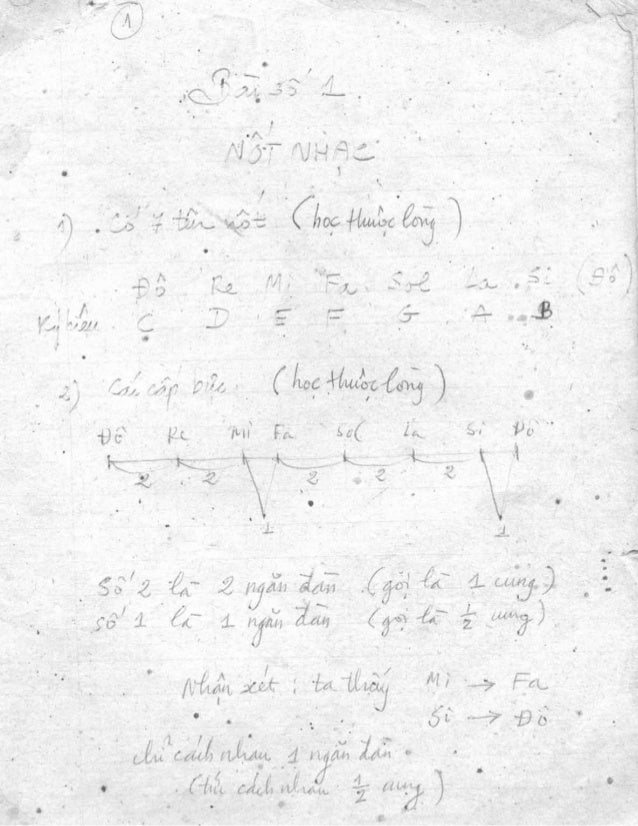 1
Bài số 1
NỐT NHẠC
1) Có 7 tên nốt (học thuộc lòng)
Đô Re Mi Fa Sol La Si (Đô)
Ký hiệu C D E F G A B
2) Các cấp bực (học thuộc lòng)
Đô Re Mi Fa Sol La Si Đô
2 2 2 2 2
1 1
Số 2 là 2 ngăn đàn (gọi là 1 cung)
số 1 là 1 ngăn đàn (gọi là 1/2 cung)
Nhận xét : ta thấy Mi → Fa
Si → Đô
chỉ cách nhau 1 ngăn đàn
(tức cách nhau 1/2 cung)